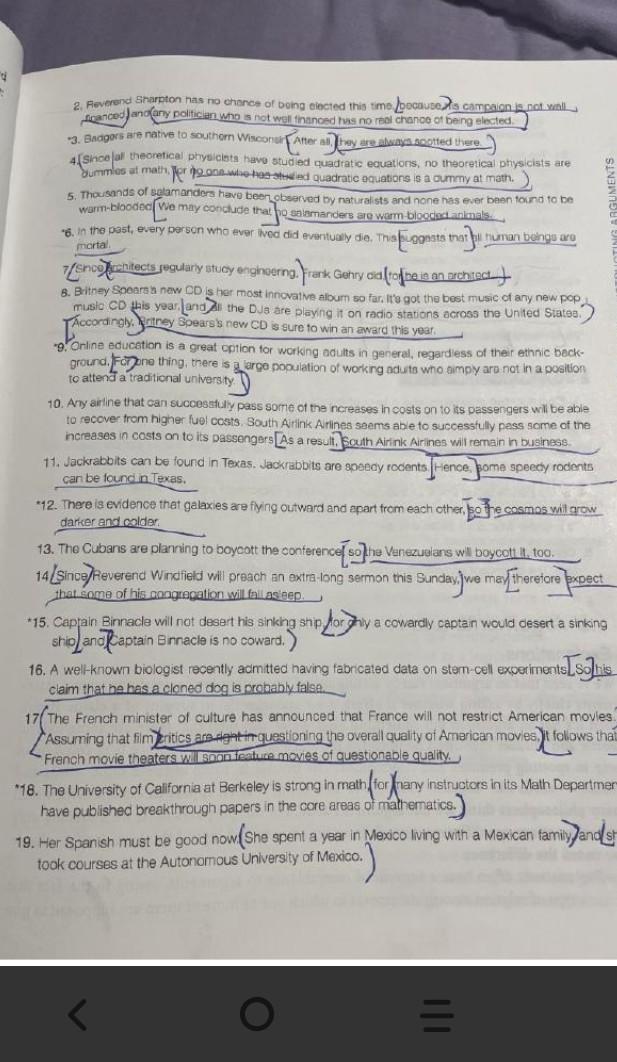 2. Reverend Sharpton has no chance of being elected this time, because his campaign is not well
financed, and any politician who is not well financed has no real chance of being elected.
*3. Badgers are native to southern Wisconsin. After all, they are always spotted there.
4. Since all theoretical physicists have studied quadratic equations, no theoretical physicists are
dummies at math, for no one who has studied quadratic equations is a dummy at math.
5. Thousands of salamanders have been observed by naturalists and none has ever been found to be
warm-blooded. We may conclude that no salamanders are warm-blooded animals.
*6. In the past, every person who ever lived did eventually die. This suggests that all human beings are
mortal.
7. Since architects regularly study engineering, Frank Gehry did, for he is an architect.
8. Britney Spears's new CD is her most innovative album so far. It's got the best music of any new pop
music CD this year, and all the DJs are playing it on radio stations across the United States.
Accordingly, Britney Spears's new CD is sure to win an award this year.
*9. Online education is a great option for working adults in general, regardless of their ethnic back-
ground. For one thing, there is a large population of working adults who simply are not in a position
to attend a traditional university.
10. Any airline that can successfully pass some of the increases in costs on to its passengers will be able
to recover from higher fuel costs. South Airlink Airlines seems able to successfully pass some of the
increases in costs on to its passengers. As a result, South Airlink Airlines will remain in business.
11. Jackrabbits can be found in Texas. Jackrabbits are speedy rodents. Hence, some speedy rodents
can be found in Texas.
*12. There is evidence that galaxies are flying outward and apart from each other, so the cosmos will grow
darker and colder.
13. The Cubans are planning to boycott the conference, so the Venezuelans will boycott it, too.
14. Since Reverend Windfield will preach an extra-long sermon this Sunday, we may therefore expect
that some of his congregation will fall asleep.
*15. Captain Binnacle will not desert his sinking ship, for only a cowardly captain would desert a sinking
ship, and Captain Binnacle is no coward.
16. A well-known biologist recently admitted having fabricated data on stem-cell experiments. So his
claim that he has a cloned dog is probably false.
17. The French minister of culture has announced that France will not restrict American movies.
Assuming that film critics are right in questioning the overall quality of American movies, it follows that
French movie theaters will soon feature movies of questionable quality.
*18. The University of California at Berkeley is strong in math, for many instructors in its Math Departmen
have published breakthrough papers in the core areas of mathematics.
19. Her Spanish must be good now. She spent a year in Mexico living with a Mexican family, and sh
took courses at the Autonomous University of Mexico.